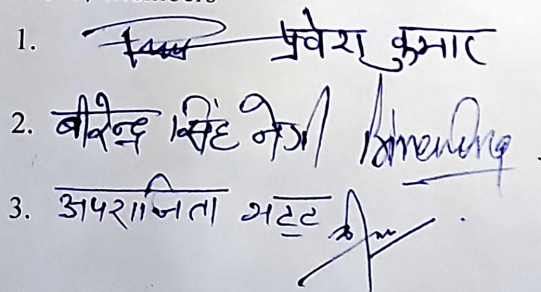 1. प्रवेश कुमार
2. बीरेन्द्र सिंह नेगी
3. अपराजिता भट्ट